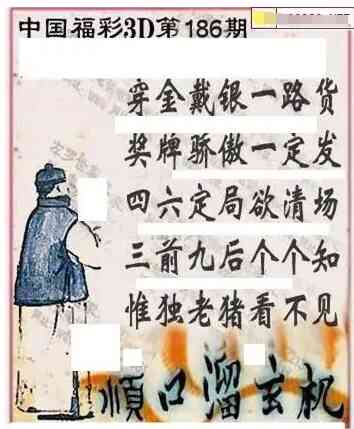 中国福彩3D第186期
穿金戴银一路货
奖牌骄傲一定发
四六定局欲清场
三前九后个个知
惟独老猪看不见
顺口溜玄机